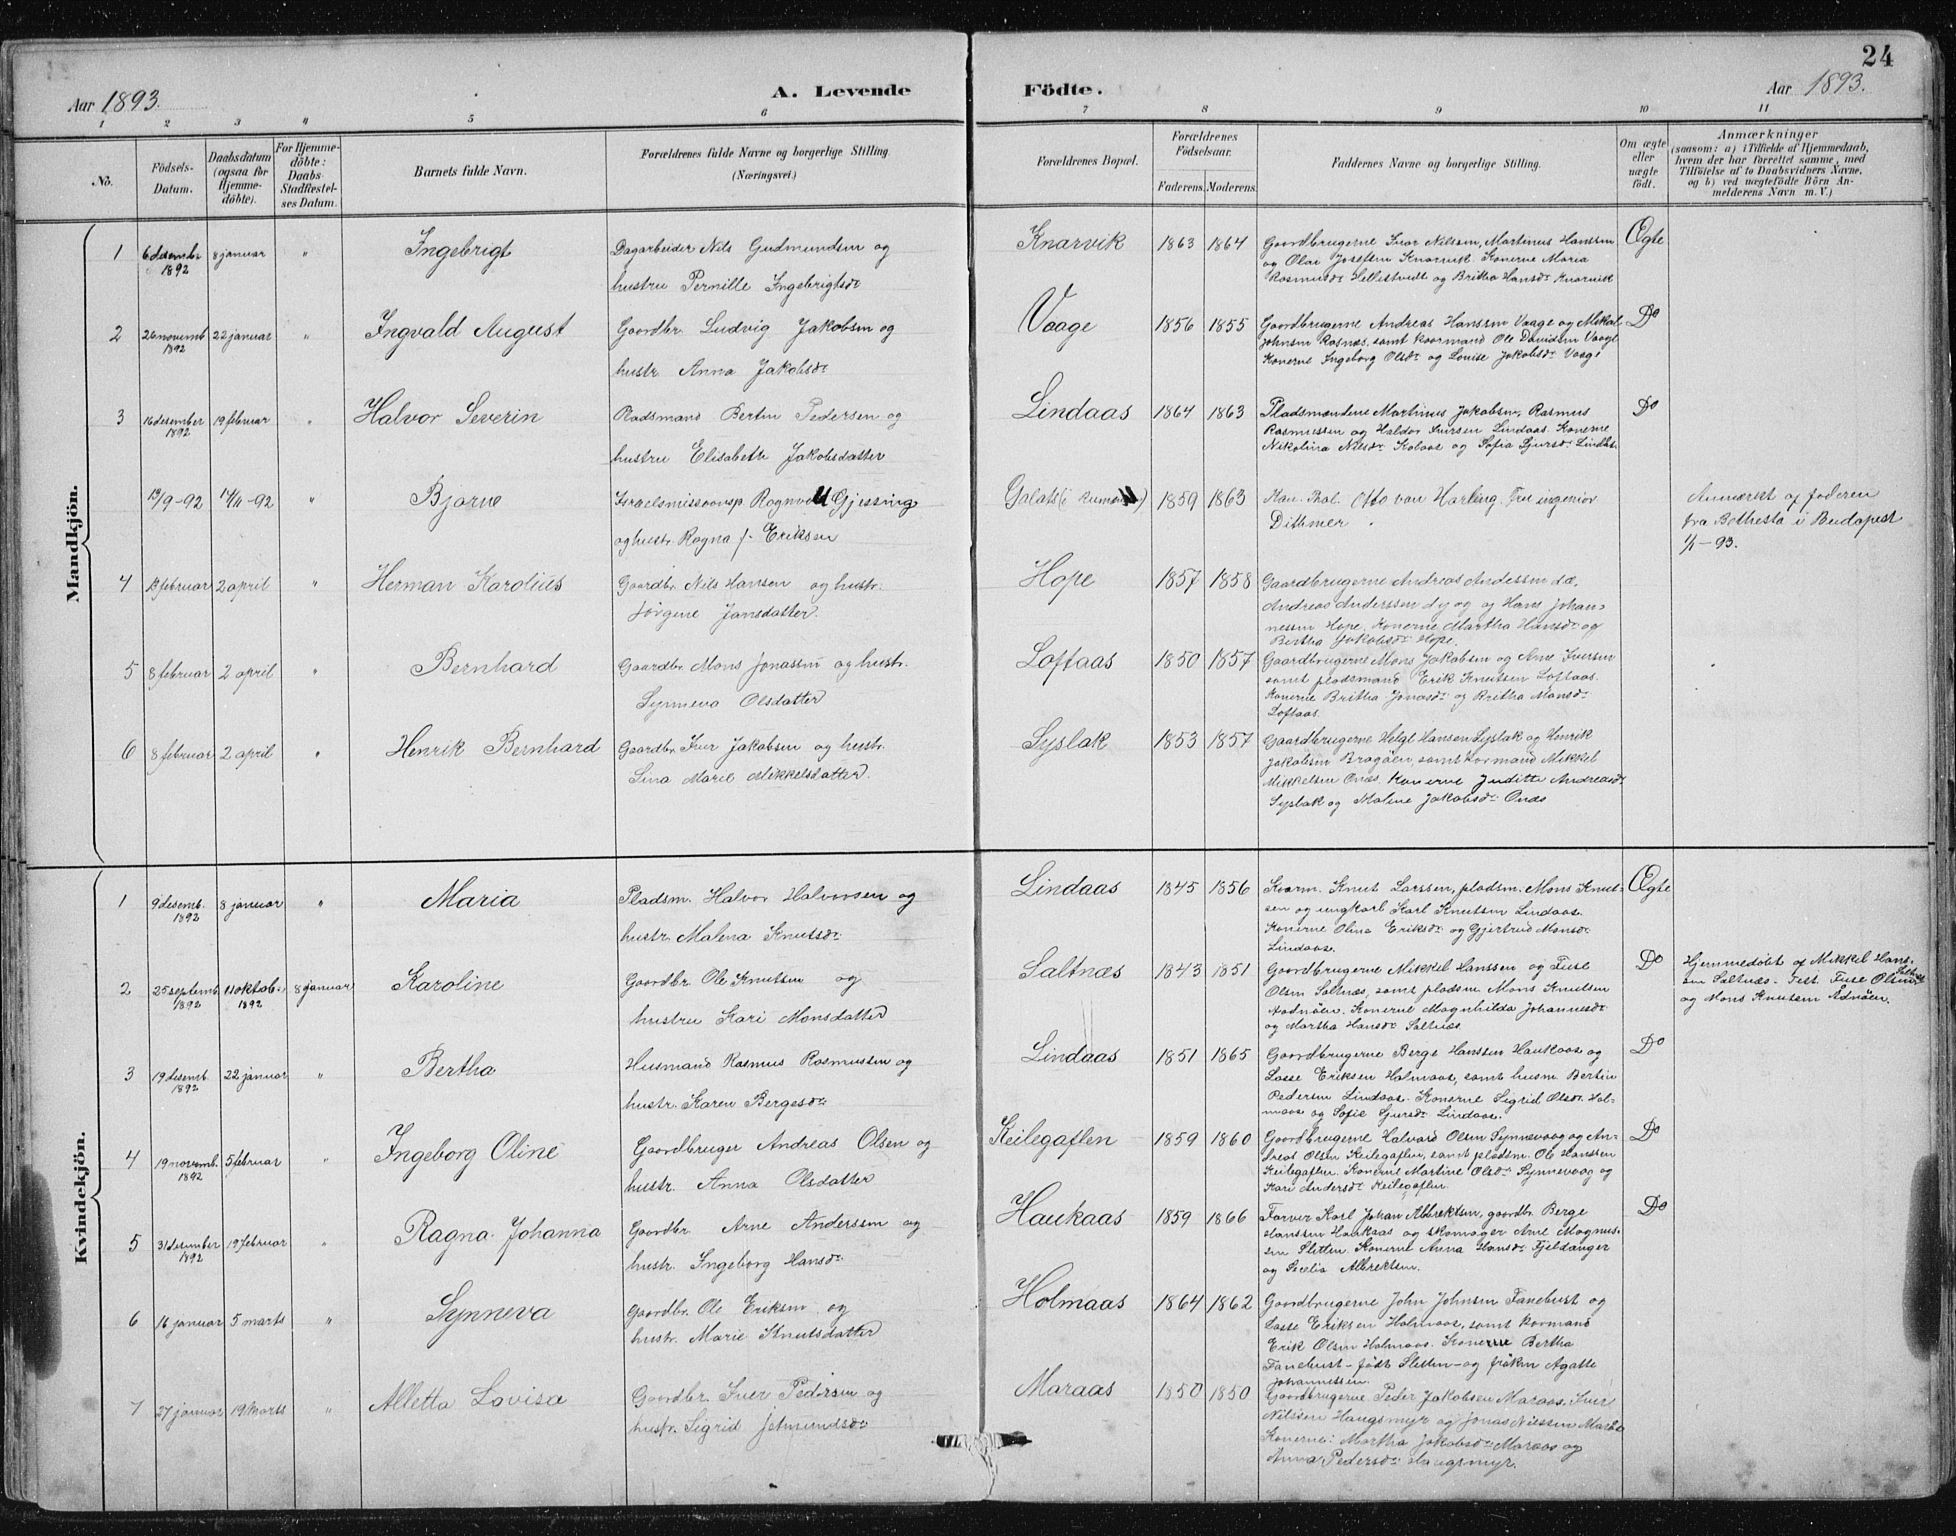 24
Aar 1893.
A. Levende Födte.
Aar 1893.
1 2 3 4 5 6 7 8 9 10 11
No.
Födsels-Datum.
Daabsdatum (ogsaa for Hjemme-döbte).
For Hjemme-döbte: Daabs-Stadfæstel-ses Datum.
Barnets fulde Navn.
Forældrenes fulde Navne og borgerlige Stilling. (Næringsvei.)
Forældrenes Bopæl.
Forældrenes Födselsaar.
Faderens. Moderens.
Faddernes Navne og borgerlige Stilling.
Om ægte eller uægte födt.
Anmærkninger
(saasom: a) i Tilfælde af Hjemmedaab,
hvem der har forrettet samme, med
Tilföielse af to Daabsvidners Navne,
og b) ved uægtefödte Börn An-
melderens Navn m. V.)
Mandkjön.
1 6 desembr 1892 8 januar " Ingebrigt
Dagarbeider Nils Gudmundsen og
hustru Pernille Ingebrigtsdr
Knarvik 1863 1864
Gaardbrugerne Ivar Nilssen, Martinus Hanssen
og Olai Josefsen Knarvik. Konerne Maria
Rasmusdr Hellestvedt og Britha Hansdr Knarvik
Ægte
2 26 novemb. 1892 22 januar " Ingvald August
Gaardbr. Ludvig Jakobsen og
hustr. Anna Jakobsdr
Vaage 1856 1855
Gaardbrugerne Andreas Hanssen Vaage og Mikal
Johnsen Rosnæs, samt kaarmand Ole Davidsen Vaage
Konerne Ingeborg Olsdr og Louise Jakobsdr Vaage
Do
3 16 desember 1892 19 februar " Halvor Severin
Pladsmand Bertin Pedersen og
hustru Elisabeth Jakobsdatter
Lindaas 1864 1863
Pladsmændene Martinus Jakobsen, Rasmus
Rasmussen og Haldor Iversen Lindaas. Konerne
Nikolina Nilsdr Kolaas og Sofia Sjursdr Lindaas.
Do
13/9-92 14/11-92 " Bjarne
Israelsmissionsp. Ragnvald Gjessing
og hustr. Ragna f. Eriksen
Galatz (i Rumænien) 1859 1863
Kan. thal. Otto van Harling. Fru ingeniør
Dithmer
Anmeldt af faderen
fra Bethesta i Budapest
1/1-93.
4 12 februar 2 april " Herman Karolius
Gaardbr. Nils Hansen og hustr.
Jørgine Jansdatter.
Hope 1857 1858
Gaardbrugerne Andreas Anderssen d.æ,
Andreas Anderssen d y og og Hans Johan-
nessen Hope. Konerne Martha Hansdr og
Bertha Jakobsdr Hope.
5 8 februar 2 april " Bernhard
Gaardbr. Mons Jonassen og hustr.
Synneva Olsdatter
Loftaas 1850 1857
Gaardbrugerne Mons Jakobsen og Arne Iversen
samt pladsmand Erik Knutsen Loftaas.
Konerne Britha Jonasdr og Britha Monsdr
Loftaas.
6 8 februar 2 april " Henrik Bernhard
Gaardbr. Iver Jakobsen og hustr.
Lina Marie Mikkelsdatter.
Syslak 1853 1857
Gaardbrugerne Helge Hansen Syslak og Henrik
Jakobsen Bragøen, samt kormand Mikkel
Mikkelsen Onæs. Konerne Juditte Andreasdr
Syslak og Malene Jakobsdr Onæs
Kvindekjön.
1 9 desemb. 1892 8 januar " Maria
Pladsm. Halvor Halvorsen og
hustr. Malena Knutsdr
Lindaas 1845 1856
Kvarm. Knut Larssen, pladsm. Mons Knut-
sen og ungkarl Karl Knutsen Lindaas.
Konerne Olina Eriksdr og Gjertrud Monsdr
Lindaas.
Ægte
2 25 septemb. 1892 11 oktob. 1892 8 januar Karoline
Gaardbr. Ole Knutsen og
hustru Kari Monsdatter
Saltnæs 1843 1851
Gaardbrugerne Mikkel Hanssen og Fuse
Olsen Saltnæs, samt pladsm Mons Knutsen
Aadnøen. Konerne Magnhilda Johannesdr
og Martha Hansdr Saltnæs.
Do
Hjemmedøbt af Mikkel Hans-
sen Saltnæs. Test. Fuse Olsen Saltnæs
og Mons Knutsen Ådnøen.
3 19 desemb. 1892 22 januar " Bertha
Husmand Rasmus Rasmussen og
hustr. Karen Bergesdr
Lindaas 1851 1865
Gaardbrugerne Berge Hanssen Haukaas og
Lasse Eriksen Holmaas, samt husm Bertin
Pedersen Lindaas. Konerne Sigrid Olsdr Hol-
maas og Sofie Sjursdr Lindaas.
Do
4 19 novemb. 1892 5 februar " Ingeborg Oline
Gaardbruger Andreas Olsen og
hustr. Anna Olsdatter
Keilegaflen 1859 1860
Gaardbrugerne Halvard Olsen Synnevaag og An-
dreas Olsen Keilegaflen, samt pladsm. Ole Hanssen
Keilegaflen. Konerne Martine Olsdr Synnevaag og
Kari Andersdr Keilegaflen.
Do
5 31 desember 1892 19 februar " Ragna Johanna
Gaardbr. Arne Anderssen og
hustr. Ingeborg Hansdr
Haukaas 1859 1866
Farver Karl Johan Albrektsen, gaardbr. Berge
Hanssen Haukaas og skomager Arne Magnus-
sen Sletten. Konerne Anna Hansdr Fjeldanger
og Secelia Albrektsen.
Do
6 16 januar 5 marts " Synneva
Gaardbr. Ole Eriksen og
hustr. Marie Knutsdatter
Holmaas 1864 1862
Gaardbrugerne John Johnsen Fanebust og
Lasse Eriksen Holmaas, samt kormand
Erik Olsen Holmaas. Konerne Bertha
Fanebust – født Sletten – og frøken Agatte
Johannessen.
7 27 januar 19 marts " Alletta Lovisa
Gaardbr. Iver Pedersen og
hustr. Sigrid Jetmundsdr
Maraas 1850 1850
Gaardbrugerne Peder Jakobsen Maraas. Iver
Nilssen Haugsmyr og Jonas Nilssen Maraas
Konerne: Martha Jakobsdr Maraas og
Anna Pedersdr Haugsmyr.